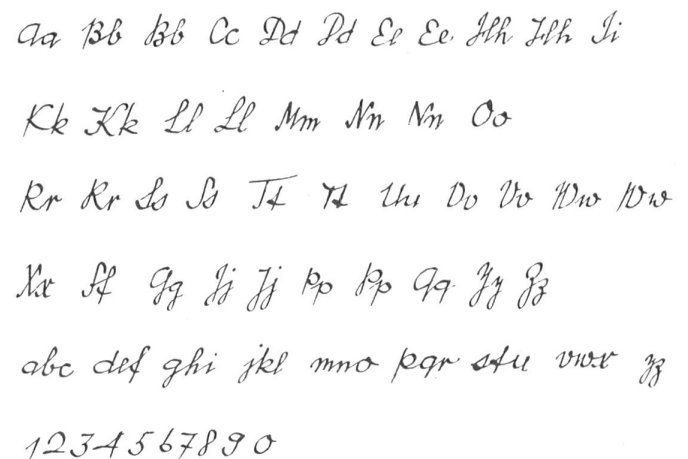 Aa Bb Bb Cc Dd Dd Ee Ee Hh Hh Ii
Kk Kk Ll Ll Mm Nn Nn Oo
Rr Rr Ss Ss Tt Tt Uu Vv Vv Ww Ww
Xx Ff Gg Jj Jj Pp Pp Qq Yy Zz
abc def ghi jkl mno pqr stu vwx yz
1234567890